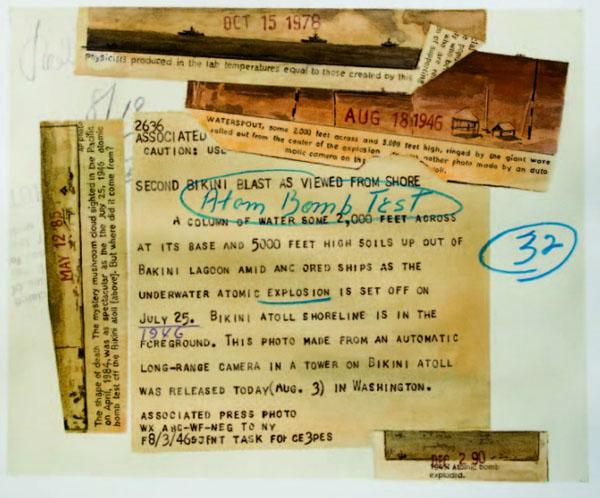 OCT 15 1978
Physicists produced in the lab temperatures equal to those created by this
AUG 18 1946
WATERSPOUT, some 2,000 feet across and 5,000 feet high, ringed by the giant wave
rolled out from the center of the explosion. Another photo made by an auto-
matic camera on the
2636
ASSOCIATED
CAUTION: USE
SECOND BIKINI BLAST AS VIEWED FROM SHORE
Atom Bomb Test
A COLUMN OF WATER SOME 2,000 FEET ACROSS
AT ITS BASE AND 5000 FEET HIGH SOILS UP OUT OF
BAKINI LAGOON AMID ANC ORED SHIPS AS THE
UNDERWATER ATOMIC EXPLOSION IS SET OFF ON
JULY 25. BIKINI ATOLL SHORELINE IS IN THE
1946
FOREGROUND. THIS PHOTO MADE FROM AN AUTOMATIC
LONG-RANGE CAMERA IN A TOWER ON BIKINI ATOLL
WAS RELEASED TODAY (AUG. 3) IN WASHINGTON.
ASSOCIATED PRESS PHOTO
WX ANC-WF-NEG TO NY
F8/3/46SJFNT TASK FOR CE3PES
32
MAY 12 85
The shape of death The mystery mushroom cloud sighted in the Pacific
on April, 1984, was as spectacular as the July 25, 1946 atomic
bomb test off the Bikini atoll (above). But where did it come from?
DEC 2 90
1946 Atomic bomb
exploded.